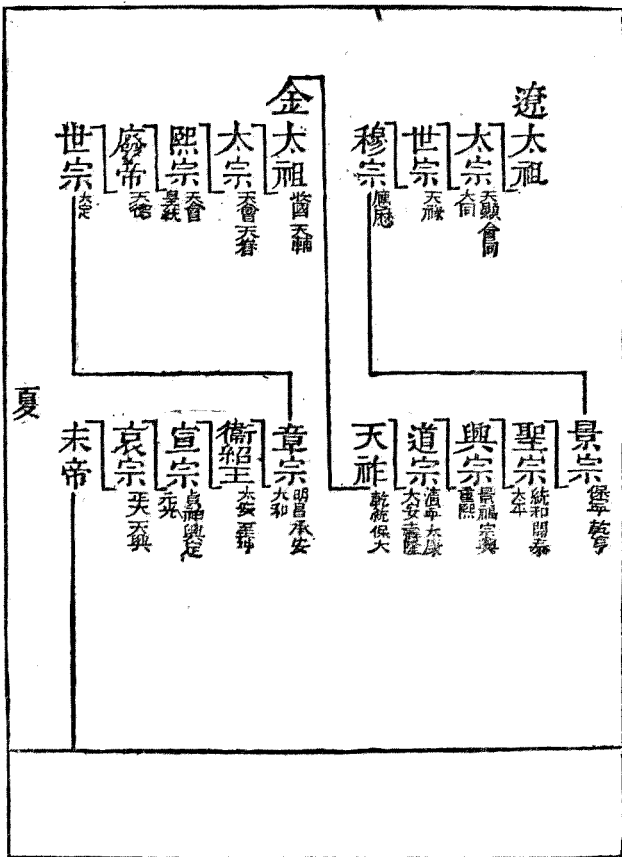 遼太祖
太宗 天顯 會同
大同
世宗 天祿
穆宗 應曆
景宗 保寧 乾亨
聖宗 統和 開泰
太平
興宗 景福 宗興
重熙
道宗 清寧 太康
大安 壽隆
天祚 乾統 保大
金太祖 收國 天輔
太宗 天會
熙宗 天會
皇統
廢帝 天德
世宗 大定
章宗 明昌 承安
大和
衞紹王 大安
宣宗 貞祐 興定
元光
哀宗 正大 天興
末帝
夏